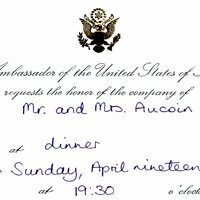 Ambassador of the United States of
requests the honor of the company of
Mr. and Mrs. Aucoin
at dinner
Sunday, April nineteen
at 19:30 o'clock